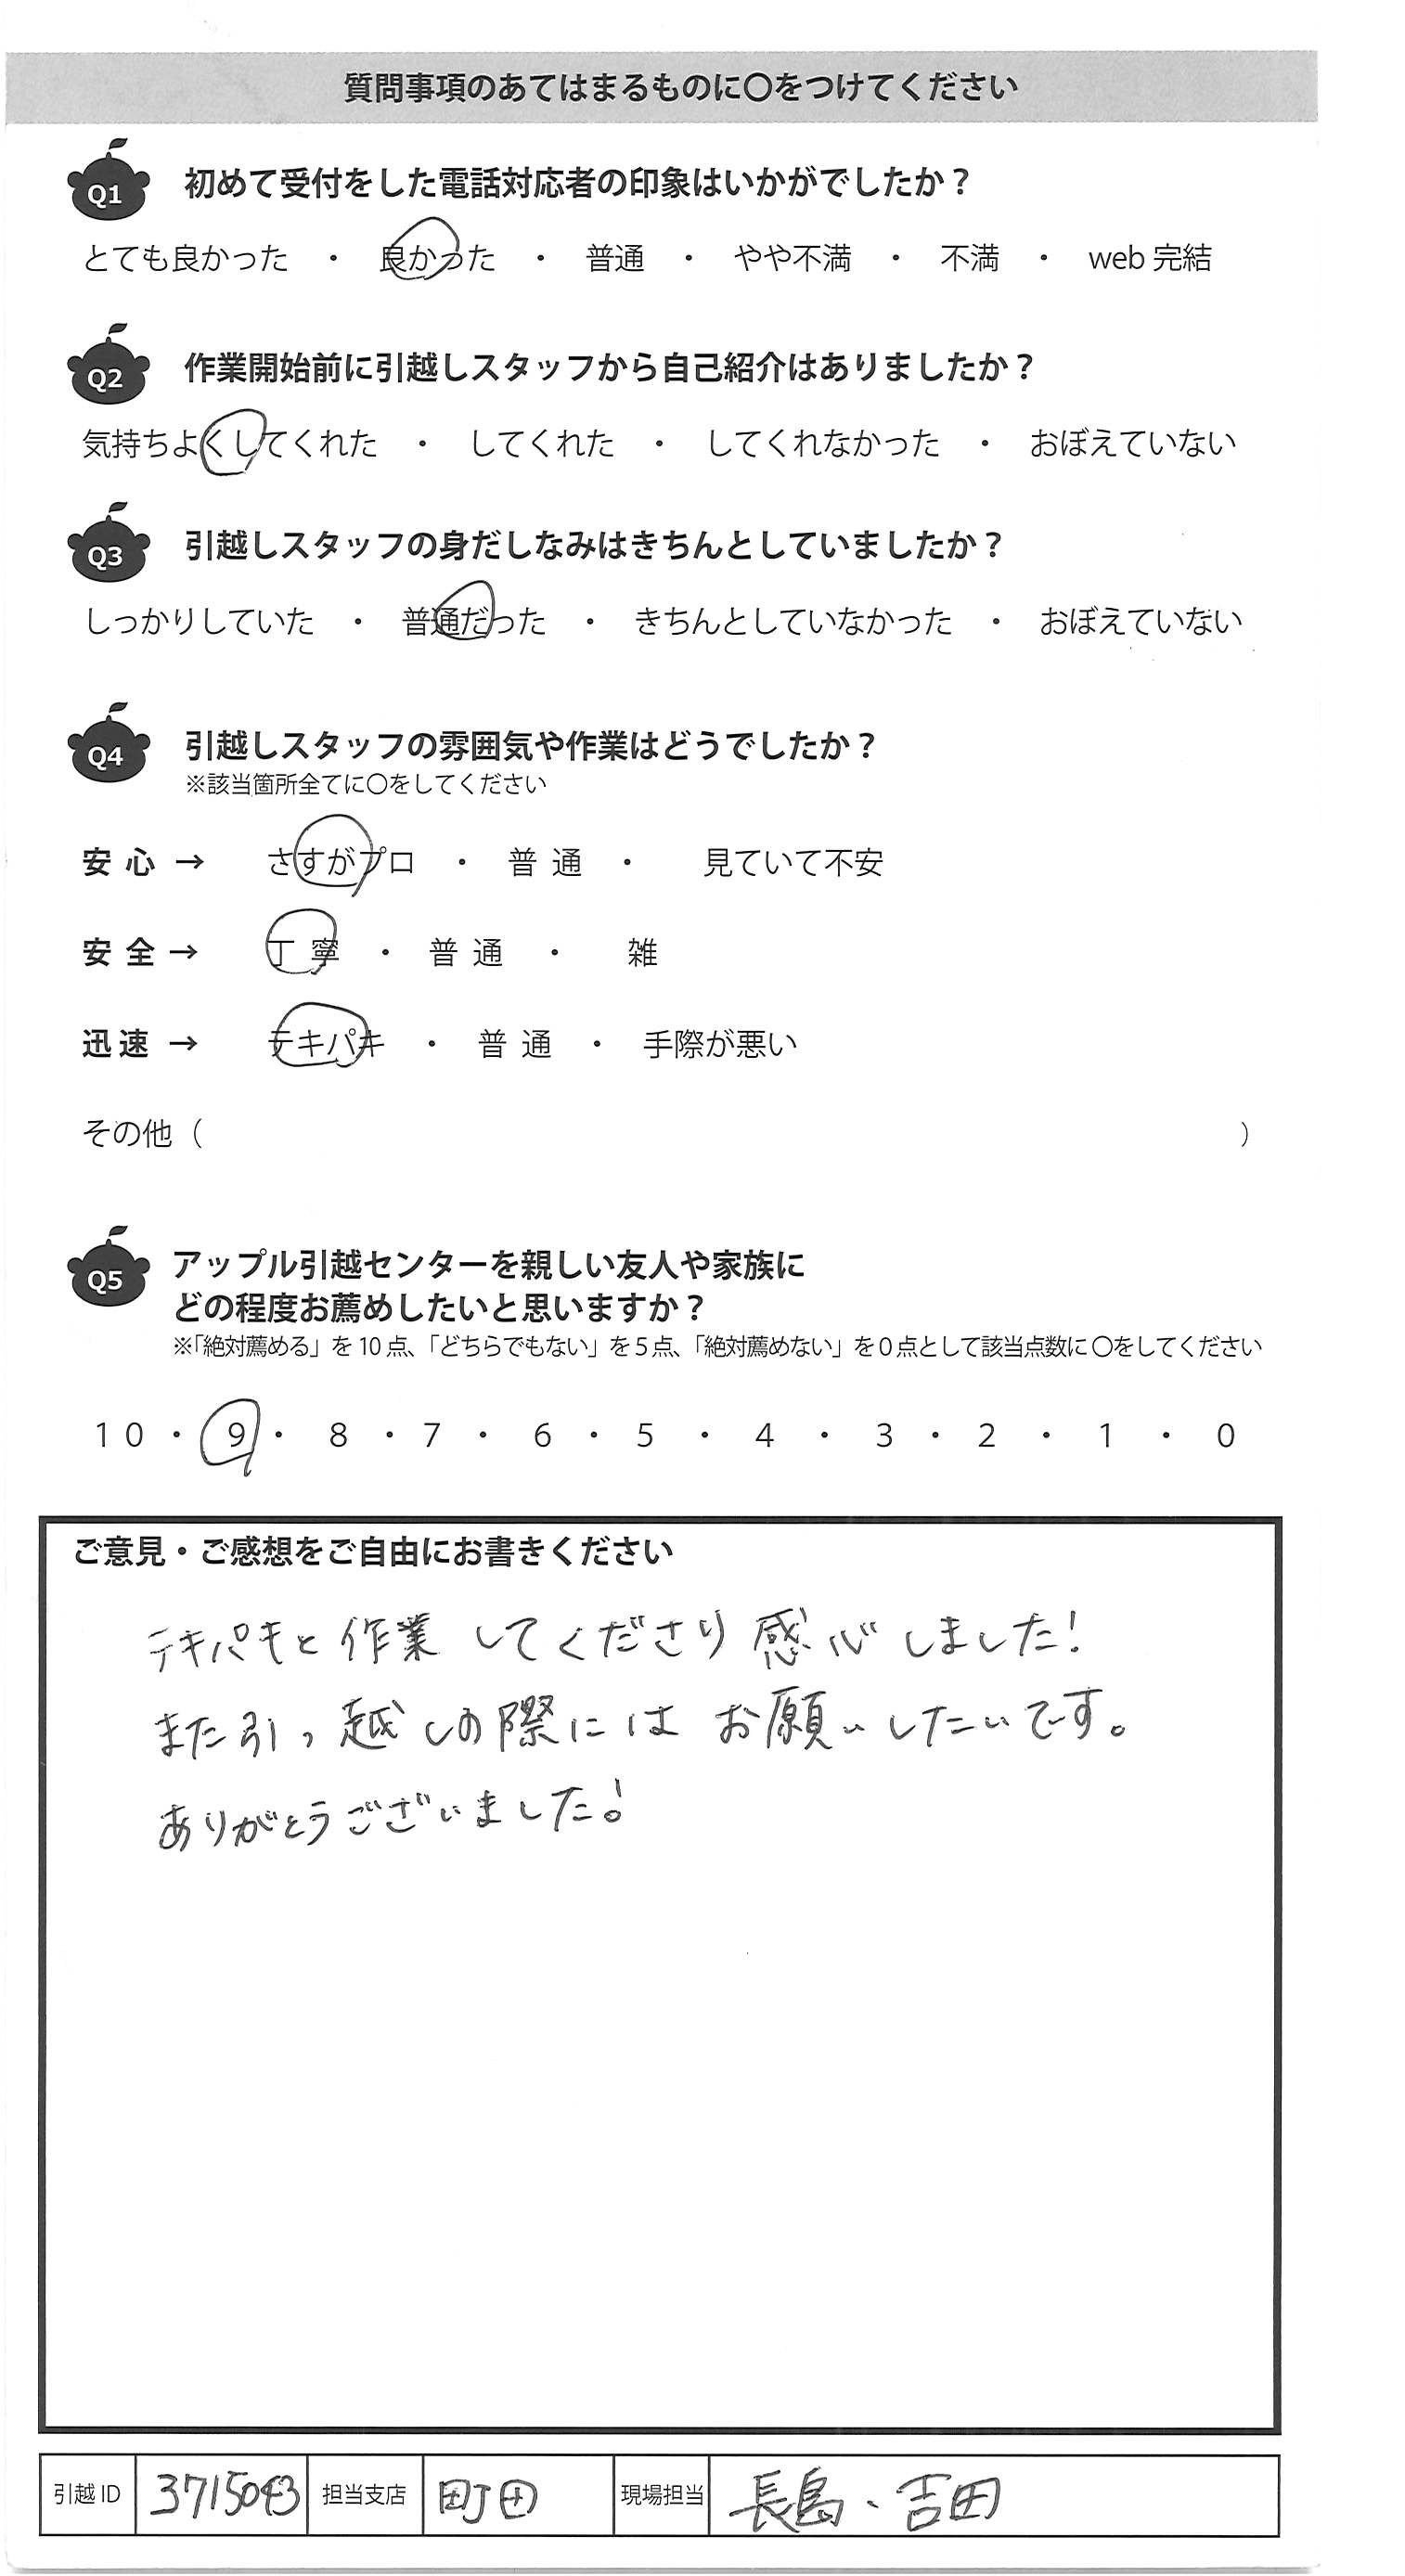 質問事項のあてはまるものに〇をつけてください
Q1 初めて受付をした電話対応者の印象はいかがでしたか？
とても良かった ・ 良かった ・ 普通 ・ やや不満 ・ 不満 ・ web 完結
Q2 作業開始前に引越しスタッフから自己紹介はありましたか？
気持ちよくしてくれた ・ してくれた ・ してくれなかった ・ おぼえていない
Q3 引越しスタッフの身だしなみはきちんとしていましたか？
しっかりしていた ・ 普通だった ・ きちんとしていなかった ・ おぼえていない
Q4 引越しスタッフの雰囲気や作業はどうでしたか？
※該当箇所全てに〇をしてください
安心 → さすがプロ ・ 普通 ・ 見ていて不安
安全 → 丁寧 ・ 普通 ・ 雑
迅速 → テキパキ ・ 普通 ・ 手際が悪い
その他（ ）
Q5 アップル引越センターを親しい友人や家族に
どの程度お薦めしたいと思いますか？
※「絶対薦める」を10点、「どちらでもない」を5点、「絶対薦めない」を0点として該当点数に〇をしてください
10 ・ 9 ・ 8 ・ 7 ・ 6 ・ 5 ・ 4 ・ 3 ・ 2 ・ 1 ・ 0
ご意見・ご感想をご自由にお書きください
テキパキと作業してくださり感心しました!
また引っ越しの際にはお願いしたいです。
ありがとうございました!
引越ID 3715043 担当支店 町田 現場担当 長島、吉田